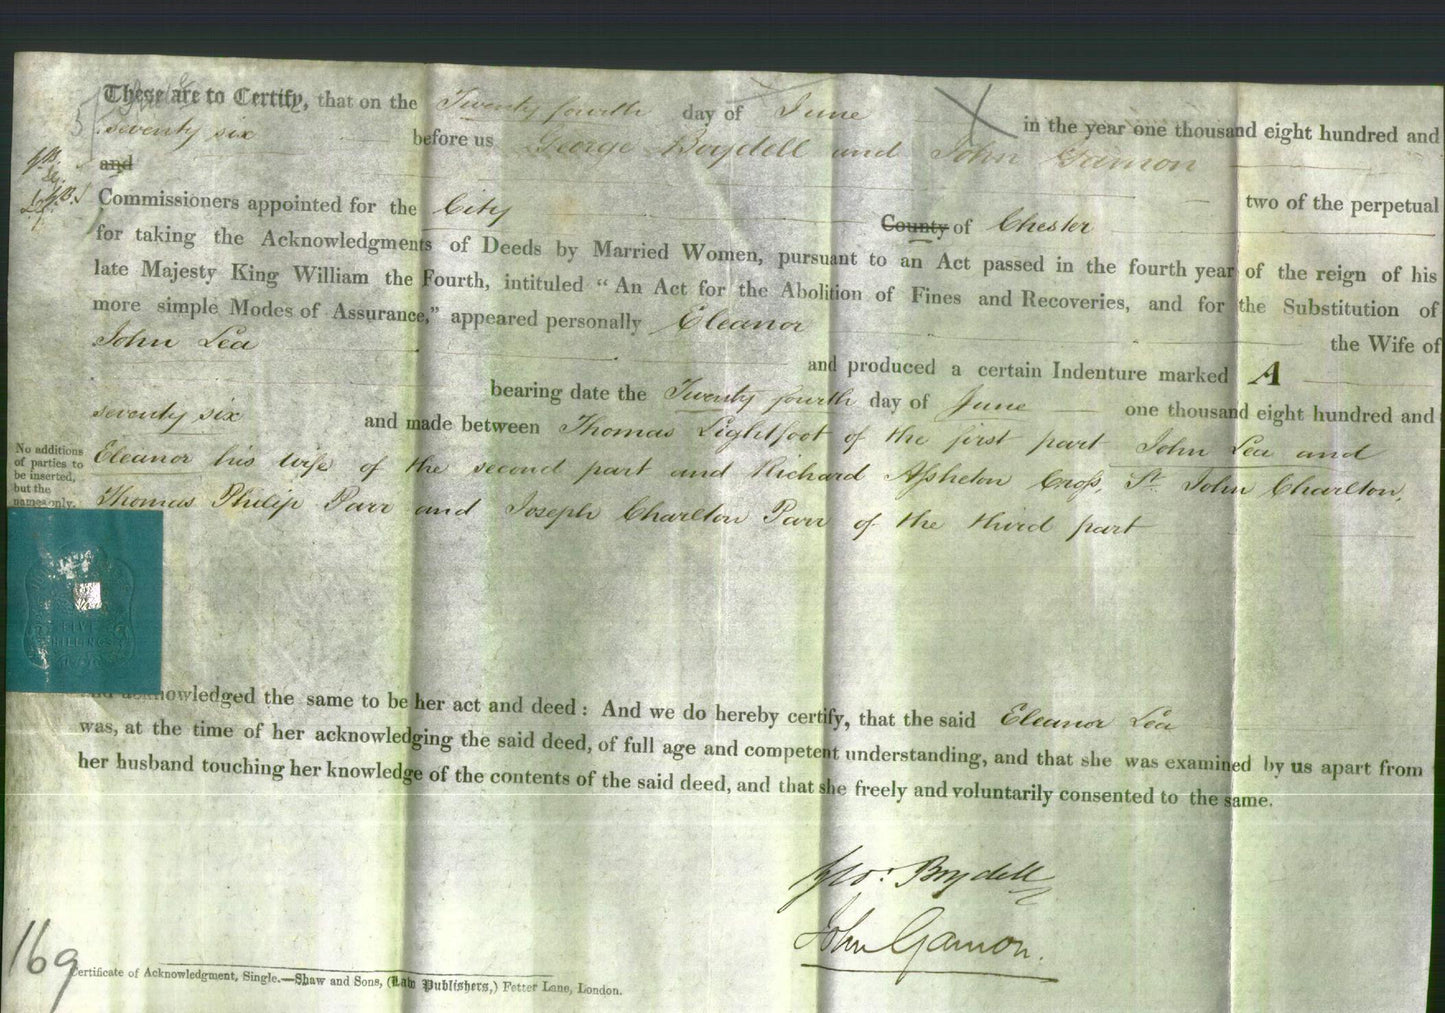 These are to Certify, that on the Twenty fourth day of June in the year one thousand eight hundred and
seventy six before us George Boydell and John Gamon
and two of the perpetual
Commissioners appointed for the City County of Chester
for taking the Acknowledgments of Deeds by Married Women, pursuant to an Act passed in the fourth year of the reign of his
late Majesty King William the Fourth, intituled "An Act for the Abolition of Fines and Recoveries, and for the Substitution of
more simple Modes of Assurance," appeared personally Eleanor the Wife of
John Lea and produced a certain Indenture marked A
bearing date the Twenty fourth day of June one thousand eight hundred and
seventy six and made between Thomas Lightfoot of the first part John Lea and
Eleanor his wife of the second part and Richard Assheton Cross, St. John Charlton,
Thomas Philip Parr and Joseph Charlton Parr of the third part
No additions
of parties to
be inserted,
but the
names only.
FIVE
SHILLINGS
and acknowledged the same to be her act and deed: And we do hereby certify, that the said Eleanor Lea
was, at the time of her acknowledging the said deed, of full age and competent understanding, and that she was examined by us apart from
her husband touching her knowledge of the contents of the said deed, and that she freely and voluntarily consented to the same.
Geo: Boydell
John Gamon.
169
Certificate of Acknowledgment, Single.—Shaw and Sons, (Law Publishers,) Fetter Lane, London.